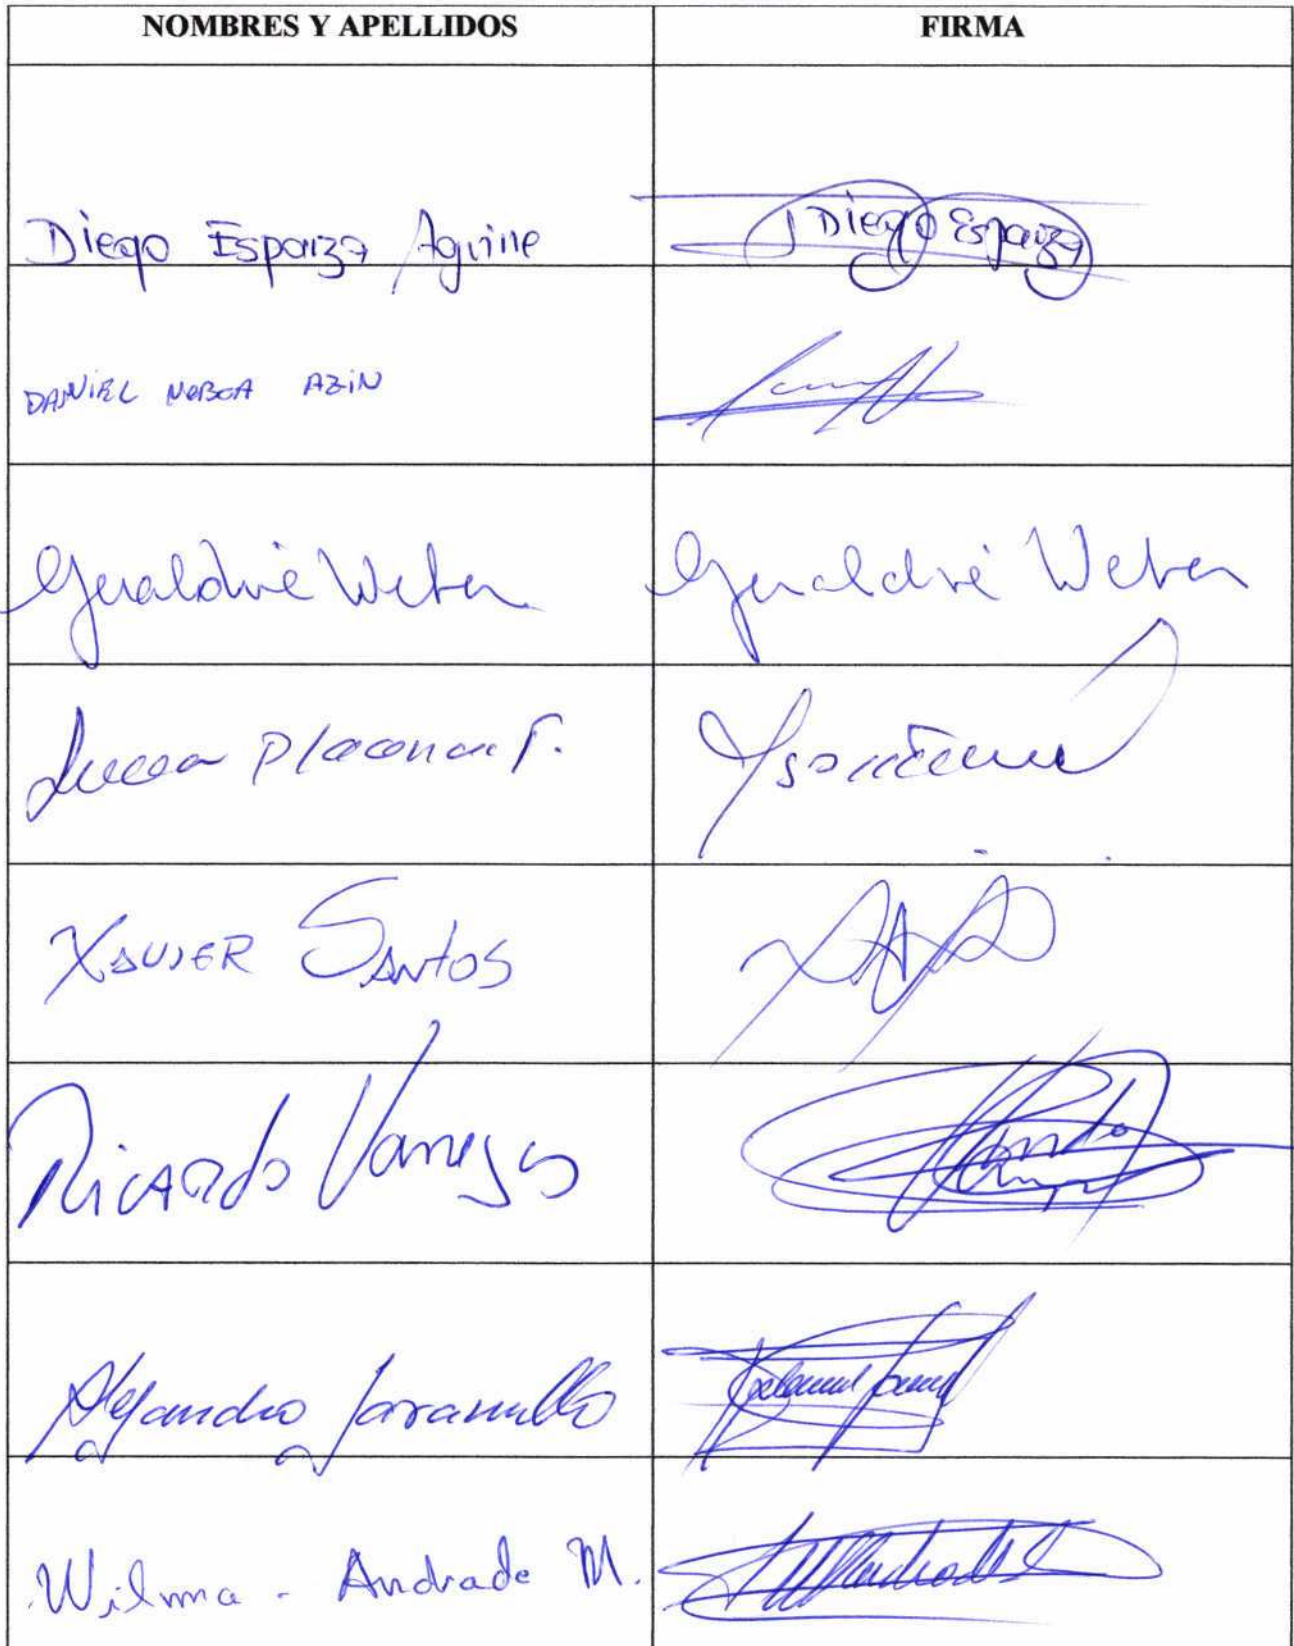 NOMBRES Y APELLIDOS FIRMA
Diego Esparza Aguirre Diego Esparza
DANIEL NOBOA AZIN
Geraldine Weber Geraldine Weber
Placencia
XAVIER SANTOS
RICARDO Vanegas
Alejandro Jaramillo
Wilma - Andrade M.